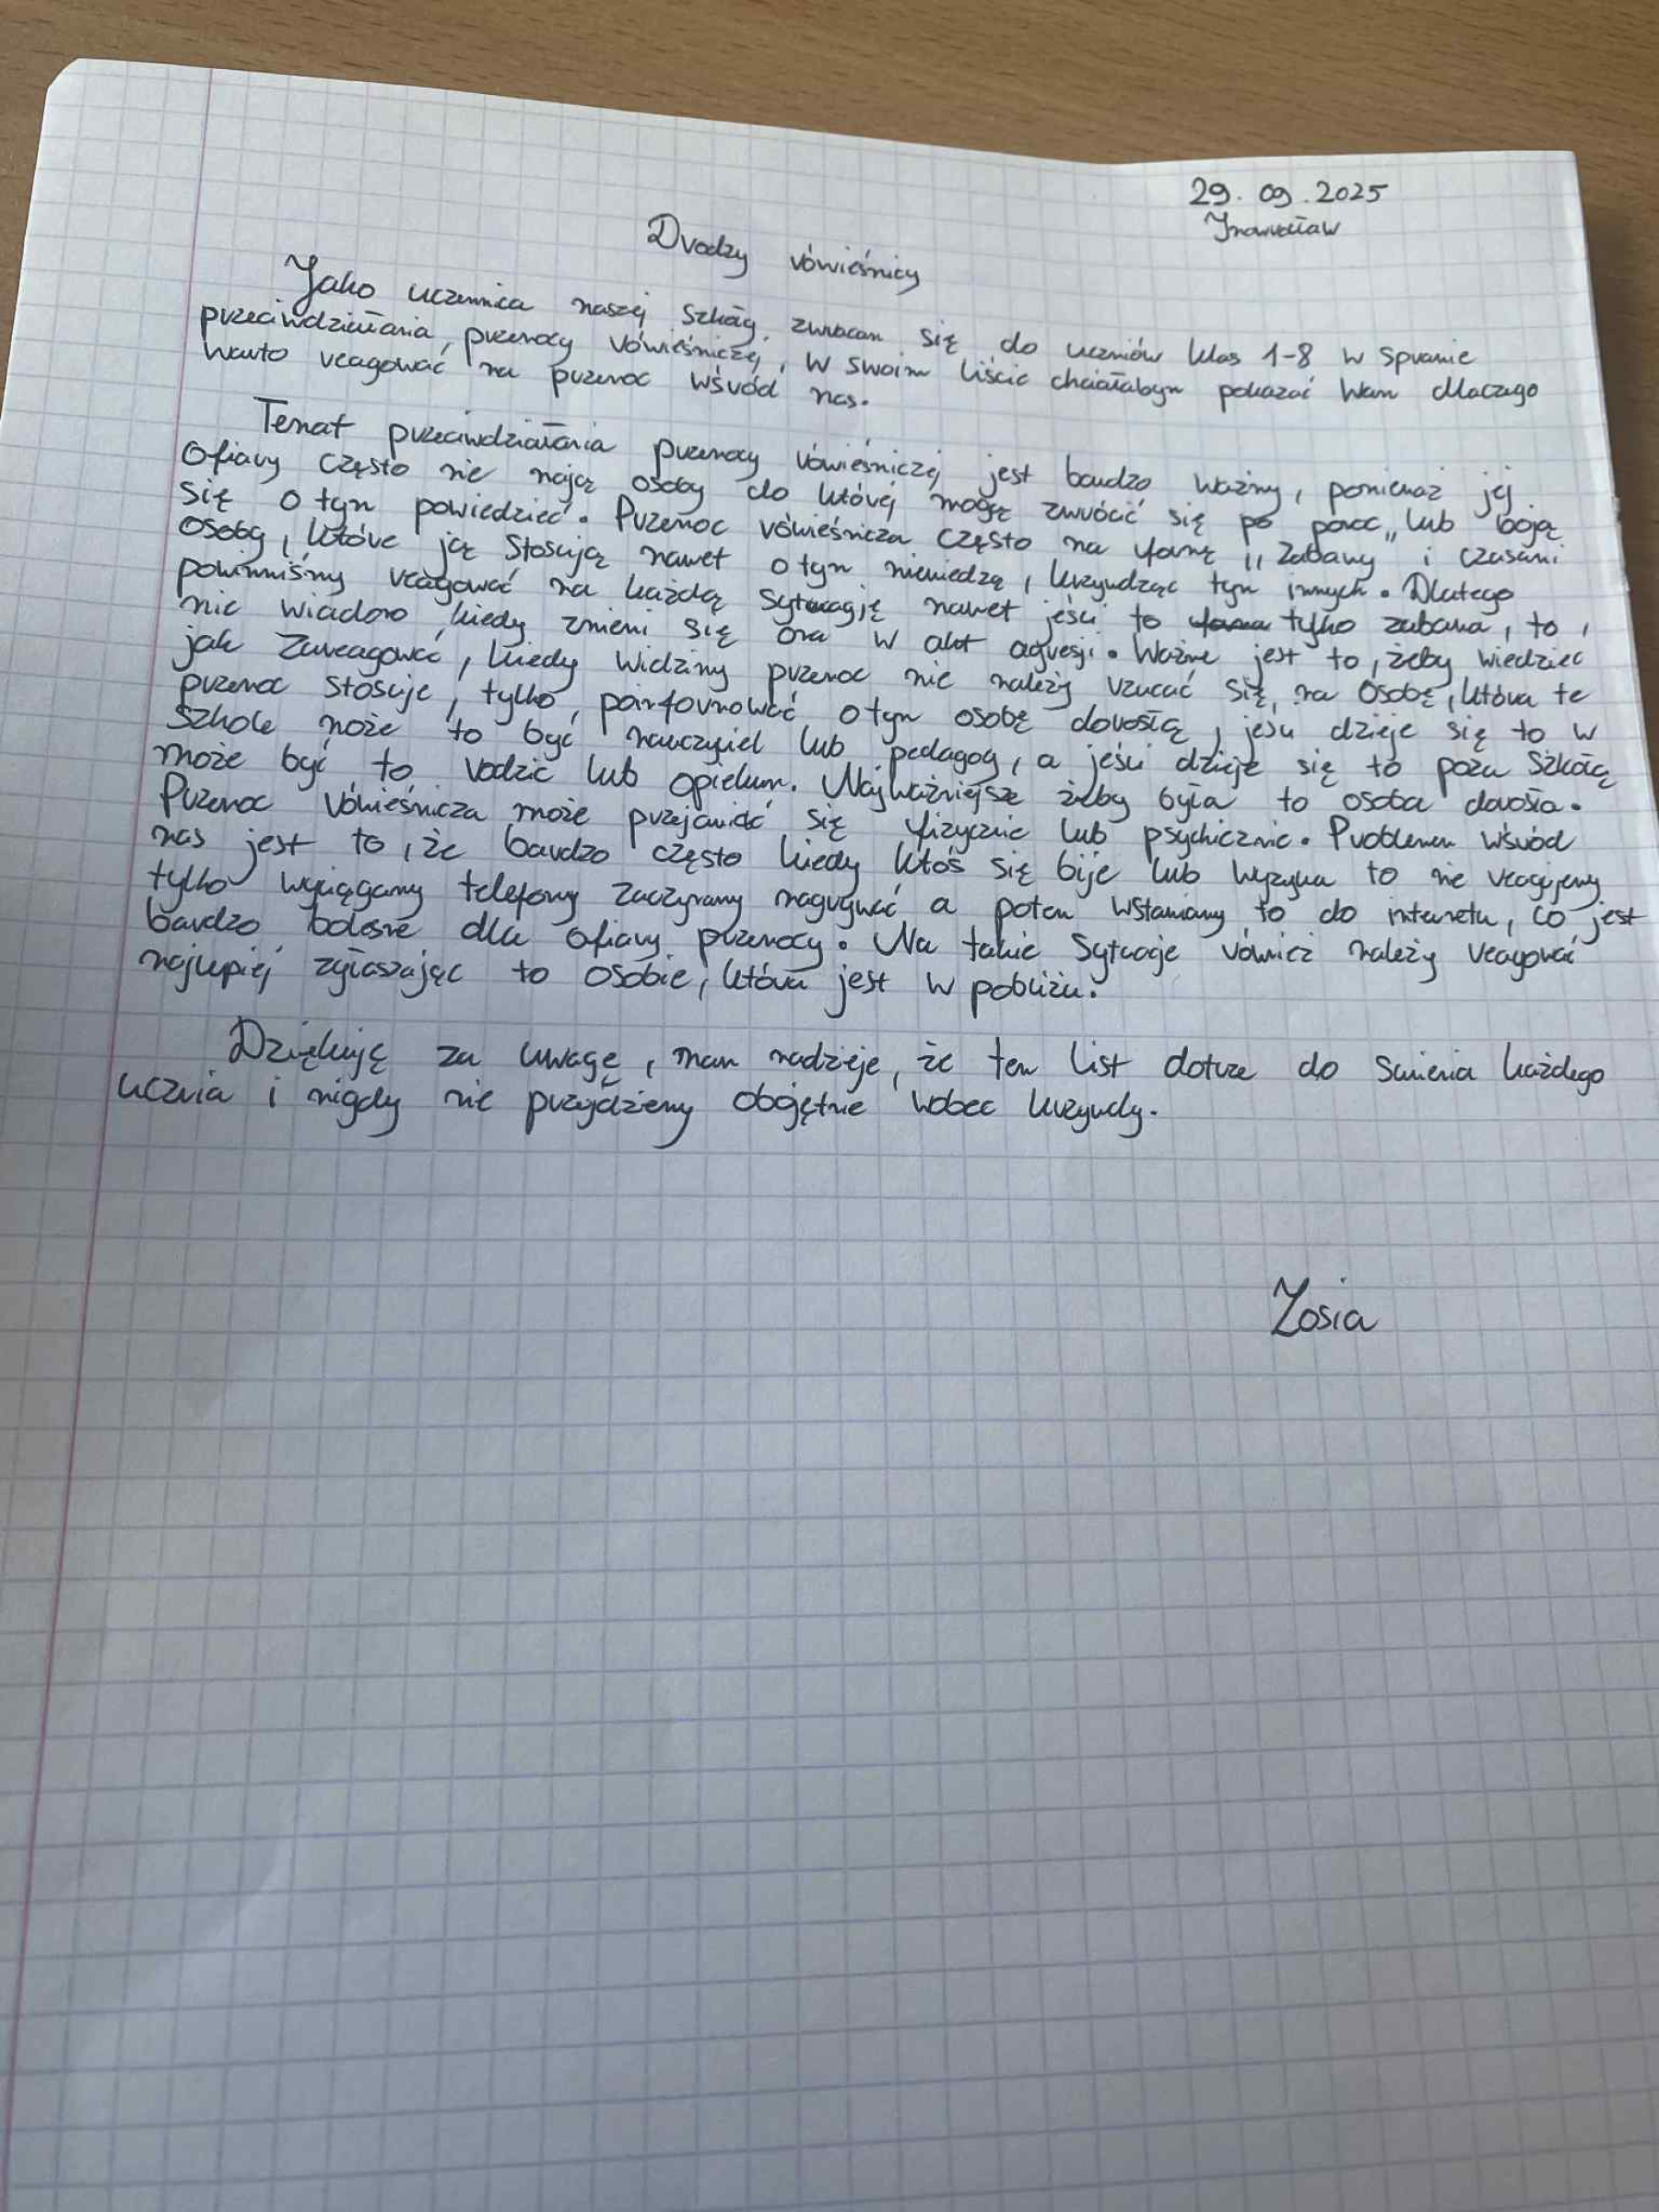 29.09.2025
Inowrocław
Drodzy rówieśnicy
Jako uczennica naszej szkoły, zwracam się do uczniów klas 1-8 w sprawie
przeciwdziałania, przemocy rówieśniczej, w swoim liście chciałabym pokazać Wam dlaczego
warto reagować na przemoc wśród nas.
Temat przeciwdziałania przemocy rówieśniczej jest bardzo ważny, ponieważ jej
Ofiary często nie mają osoby do której mogą zwrócić się po pomoc, lub boją
się o tym powiedzieć. Przemoc rówieśnicza często ma formę „Zabawy" i czasami
osoby, które ją stosują nawet o tym niewiedzą, krzywdząc tym innych. Dlatego
powinniśmy reagować na każdą sytuację nawet jeśli to tylko zabawa, to
nie wiadomo kiedy zmieni się ona w akt agresji. Ważne jest to, żeby wiedzieć
jak zareagować, kiedy widzimy przemoc nie należy rzucać się na osobę, która te
przemoc stosuje, tylko poinformować o tym osobę dorosłą, jeśli dzieje się to w
Szkole może to być nauczyciel lub pedagog, a jeśli dzieje się to poza szkołą
może być to rodzic lub opiekun. Najważniejsze żeby była to osoba dorosła.
Przemoc rówieśnicza może przejawiać się fizycznie lub psychicznie. Problemem wśród
nas jest to, że bardzo często kiedy ktoś się bije lub wyzywa to nie reagujemy
tylko wyciągamy telefony zaczynamy nagrywać a potem wstawiamy to do internetu, co jest
bardzo bolesne dla ofiary przemocy. Na takie sytuacje również należy reagować
najlepiej zgłaszając to osobie, która jest w pobliżu.
Dziękuję za uwagę, mam nadzieje, że ten list dotrze do sumienia każdego
ucznia i nigdy nie przejdziemy obojętnie wobec krzywdy.
Zosia